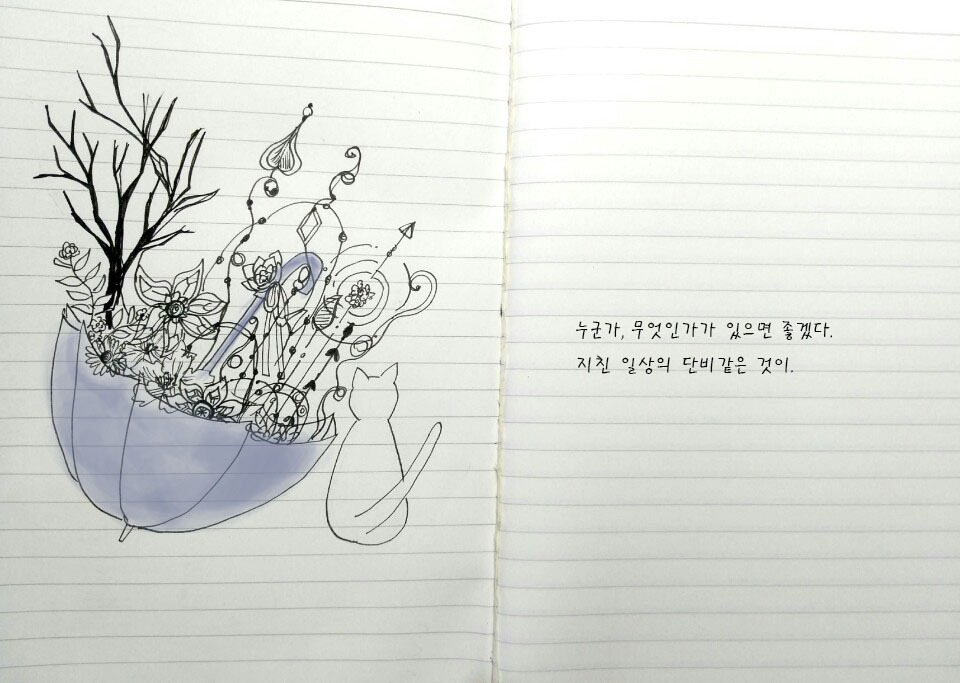 누군가, 무엇인가가 있으면 좋겠다.
지친 일상의 단비같은 것이.